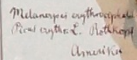 Melanerpes erythrocephalus
Picus erythr. L. Rothkopf
Amerika